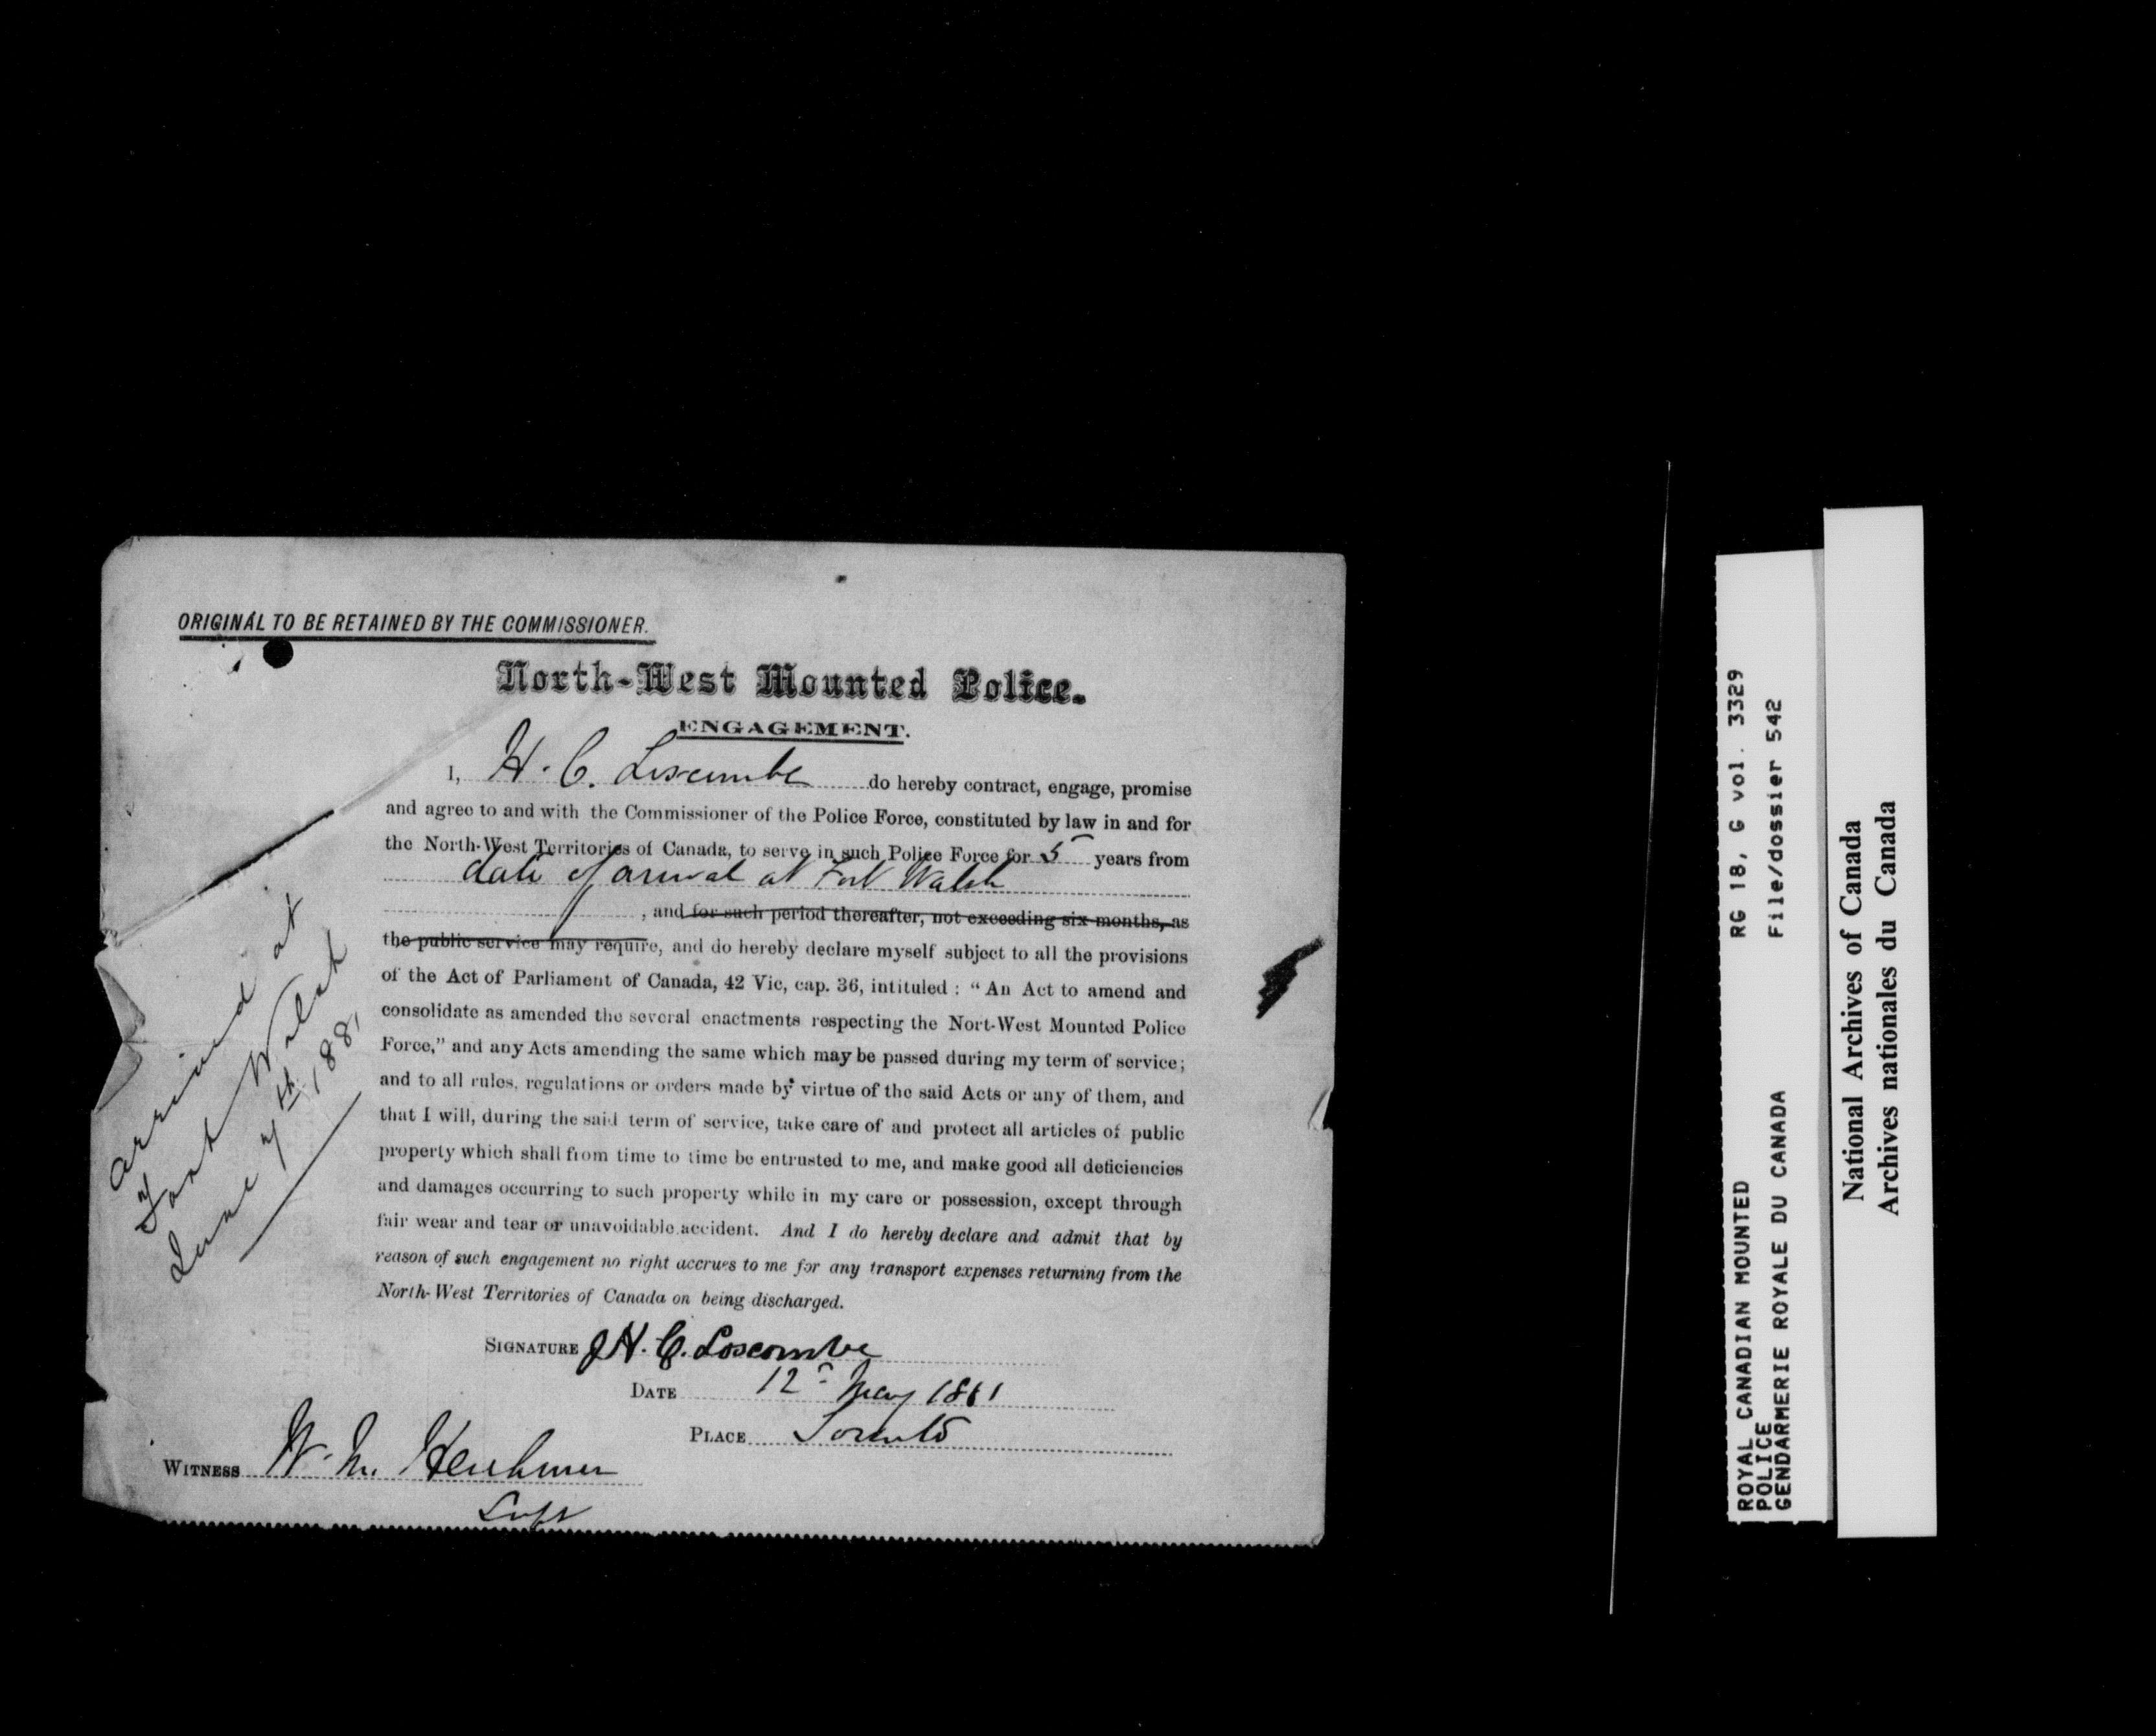 ORIGINAL TO BE RETAINED BY THE COMMISSIONER.
North-West Mounted Police.
ENGAGEMENT.
I, H. C. Loscombe do hereby contract, engage, promise
and agree to and with the Commissioner of the Police Force, constituted by law in and for
the North-West Territories of Canada, to serve in such Police Force for 5 years from
date of arrival at Fort Walsh
, and for such period thereafter, not exceeding six months, as
the public service may require, and do hereby declare myself subject to all the provisions
of the Act of Parliament of Canada, 42 Vic, cap. 36, intituled : “ An Act to amend and
consolidate as amended the several enactments respecting the Nort-West Mounted Police
Force,” and any Acts amending the same which may be passed during my term of service;
and to all rules, regulations or orders made by virtue of the said Acts or any of them, and
that I will, during the said term of service, take care of and protect all articles of public
property which shall from time to time be entrusted to me, and make good all deficiencies
and damages occurring to such property while in my care or possession, except through
fair wear and tear or unavoidable accident. And I do hereby declare and admit that by
reason of such engagement no right accrues to me for any transport expenses returning from the
North-West Territories of Canada on being discharged.
SIGNATURE J H. C. Loscombe
DATE 12 May 1881
PLACE Toronto
WITNESS W. M. Herchmer
Supt
arrived at
Fort Walsh
June 7th 1881
ROYAL CANADIAN MOUNTED RG 18, G vol. 3329
POLICE
GENDARMERIE ROYALE DU CANADA File/dossier 542
National Archives of Canada
Archives nationales du Canada